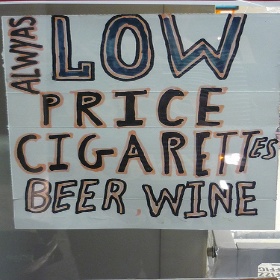 ALWYAS
LOW
PRICE
CIGARETTES
BEER, WINE